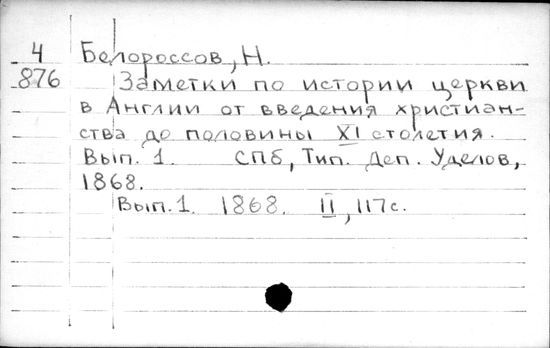 4 Белороссов, Н.
876 Заметки по истории церкви
в Англии от введения христиан-
ства до половины XI столетия.
Вып. 1. СПб, Тип. Деп. Уделов,
1868.
Вып. 1. 1868. II, 117 с.